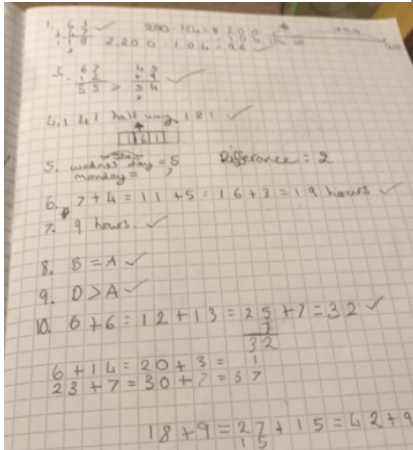 1. ✓
2. 200 - 104 = 96 ✓
3. 67
55 > 54 ✓
4. 141 half way 181 ✓
161
5. wednesday = 5 Differance = 2
monday = 7
6. 7 + 4 = 11 + 5 = 16 + 3 = 19 hours ✓
7. 9 hours ✓
8. B = A ✓
9. D > A ✓
10. 6 + 6 = 12 + 13 = 25 + 7 = 32 ✓
7
32
6 + 14 = 20 + 3 =
23 + 7 = 30 + 7 = 37
18 + 9 = 27 + 15 = 42 + 9
15